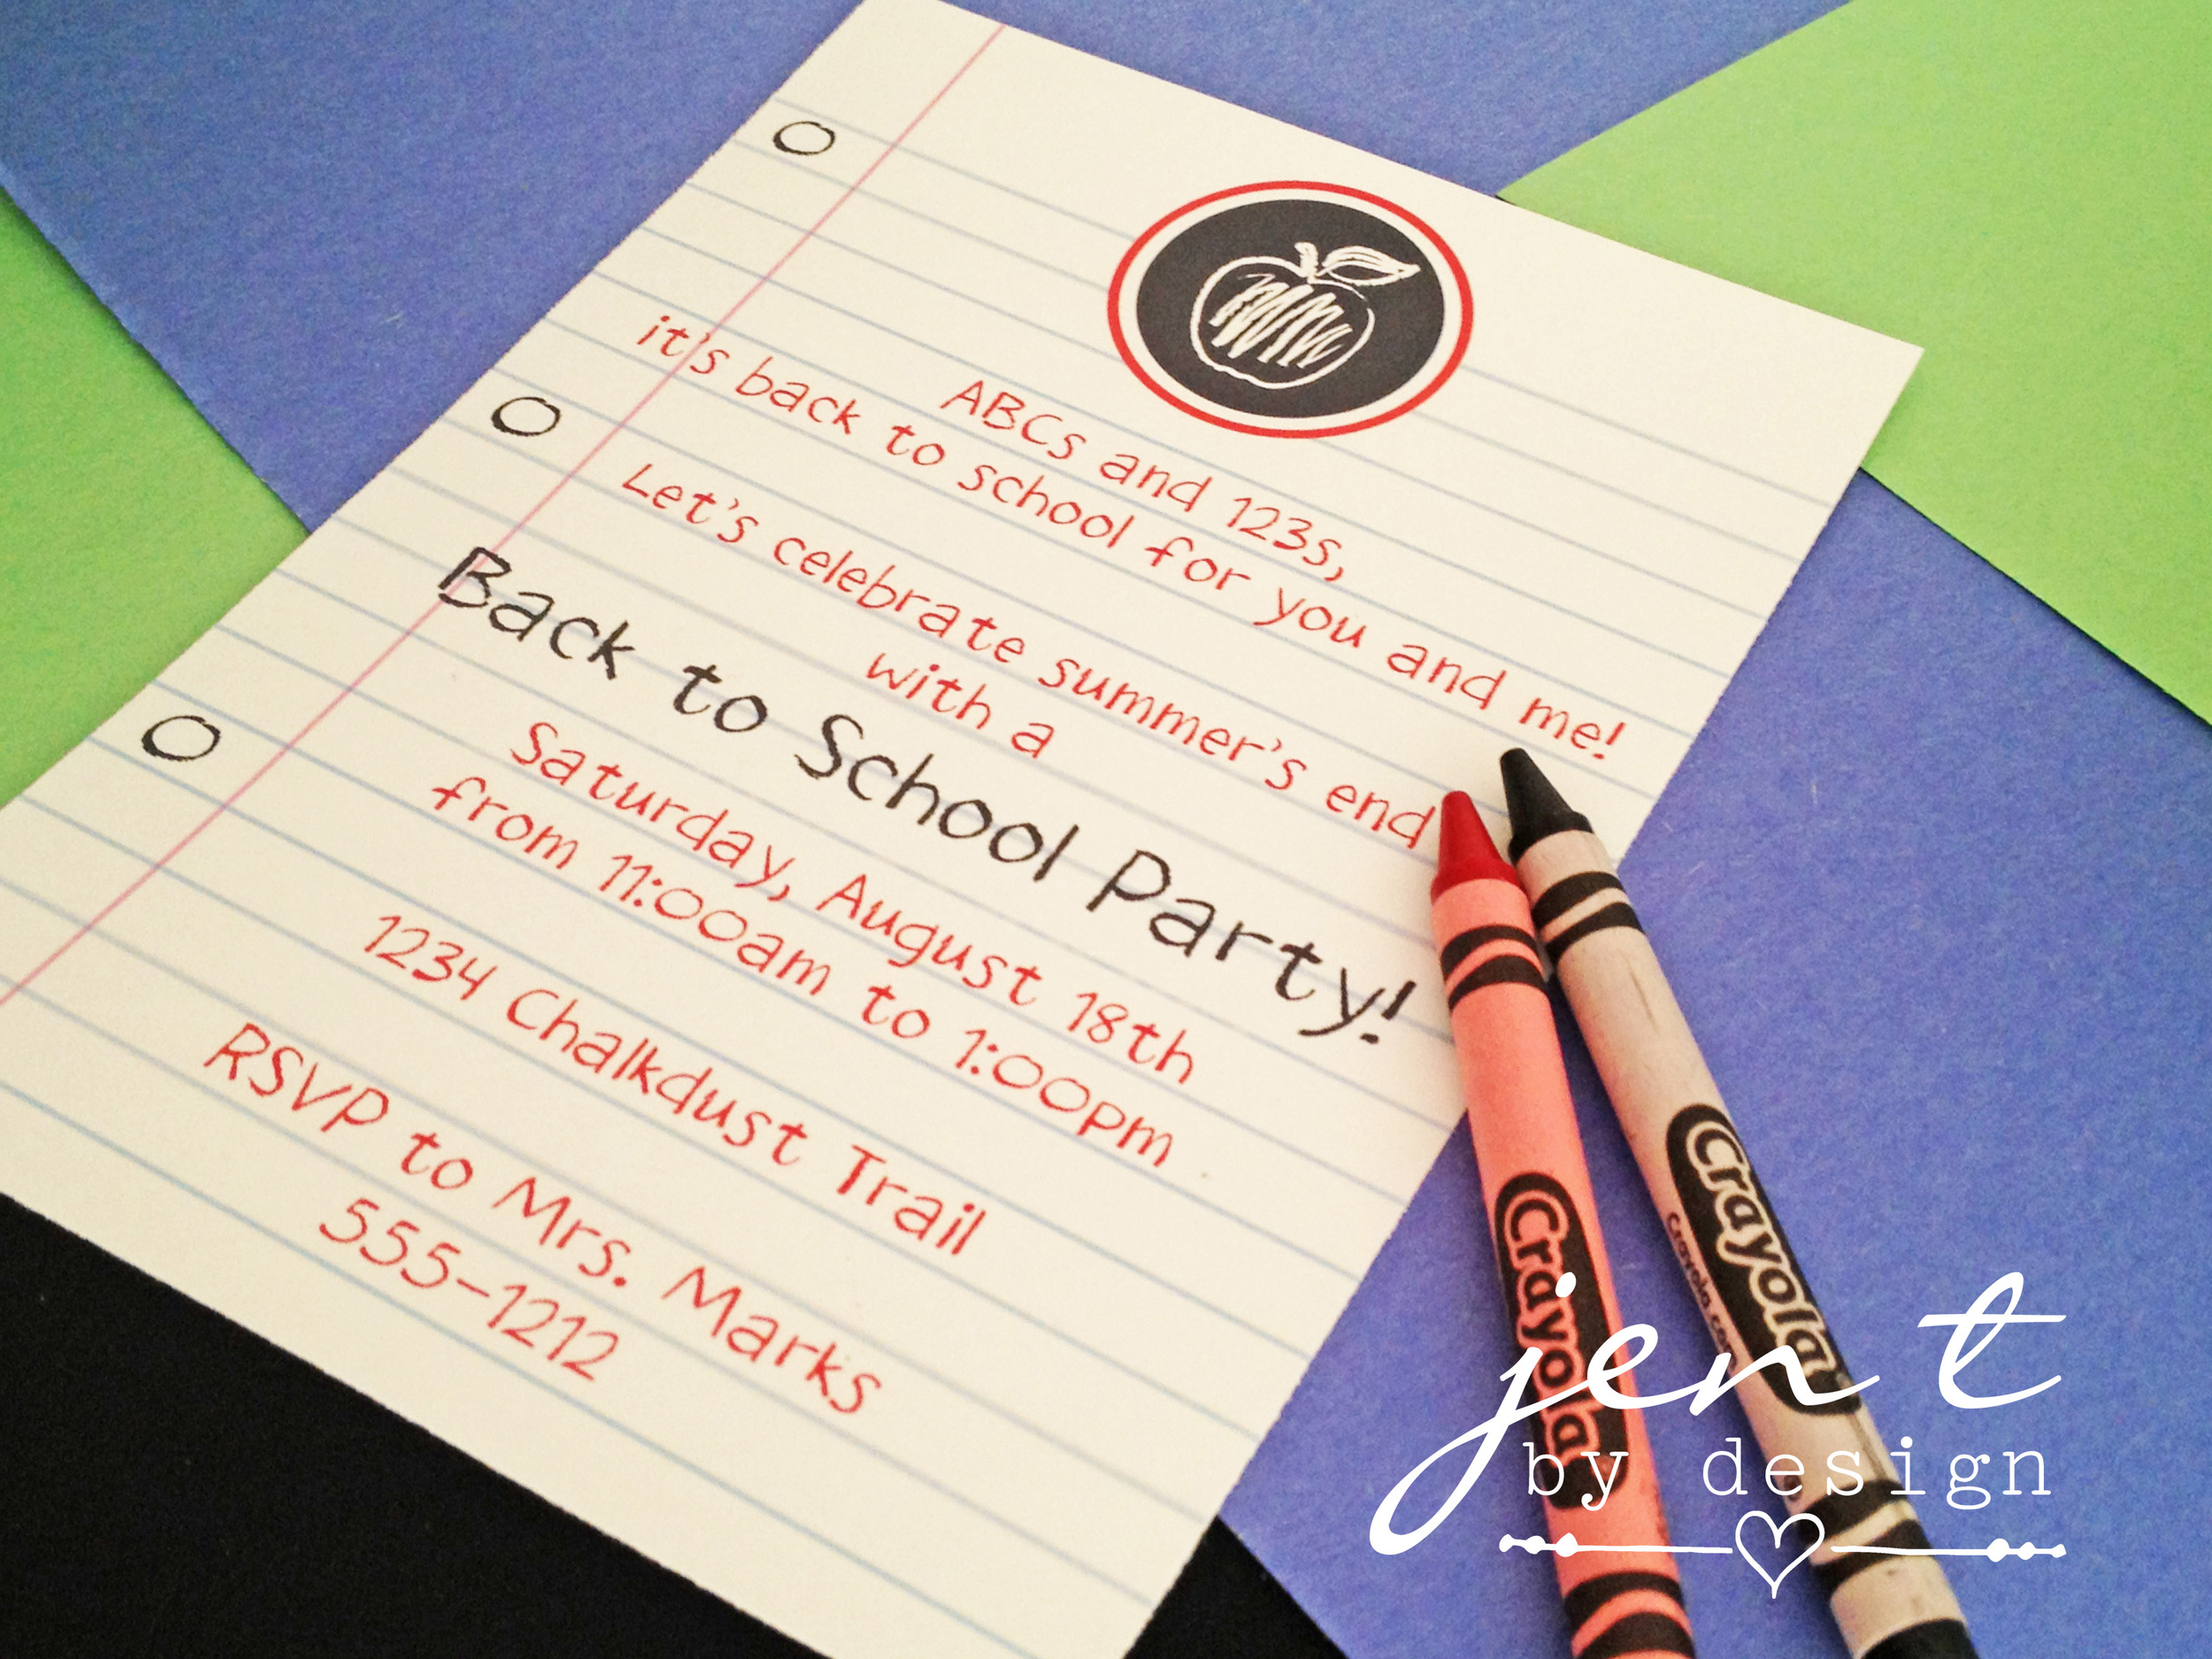 ABCs and 123s,
it's back to school for you and me!
Let's celebrate summer's end
with a
Back to School Party!
Saturday, August 18th
from 11:00am to 1:00pm
1234 Chalkdust Trail
RSVP to Mrs. Marks
555-1212
Crayola
Crayola
jen t
by design